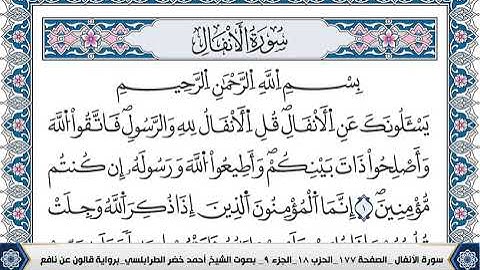 سُورَةُ الْأَنفَالِ
بِسْمِ اللَّهِ الرَّحْمَٰنِ الرَّحِيمِ
يَسْـَٔلُونَكَ عَنِ اِ۬لْأَنفَالِۖ قُلِ اِ۬لْأَنفَالُ لِلهِ وَالرَّسُولِۖ فَاتَّقُوا اُ۬للَّهَ
وَأَصْلِحُوا ذَاتَ بَيْنِكُمْۖ وَأَطِيعُوا اُ۬للَّهَ وَرَسُولَهُۥ إِن كُنتُم
مُّؤْمِنِينَۖ ١ إِنَّمَا اَ۬لْمُؤْمِنُونَ اَ۬لذِينَ إِذَا ذُكِرَ اَ۬للَّهُ وَجِلَتْ
سورة الأنفال _الصفحة ١٧٧_ الحزب ١٨_ الجزء ٩_ بصوت الشيخ أحمد خضر الطرابلسي_برواية قالون عن نافع